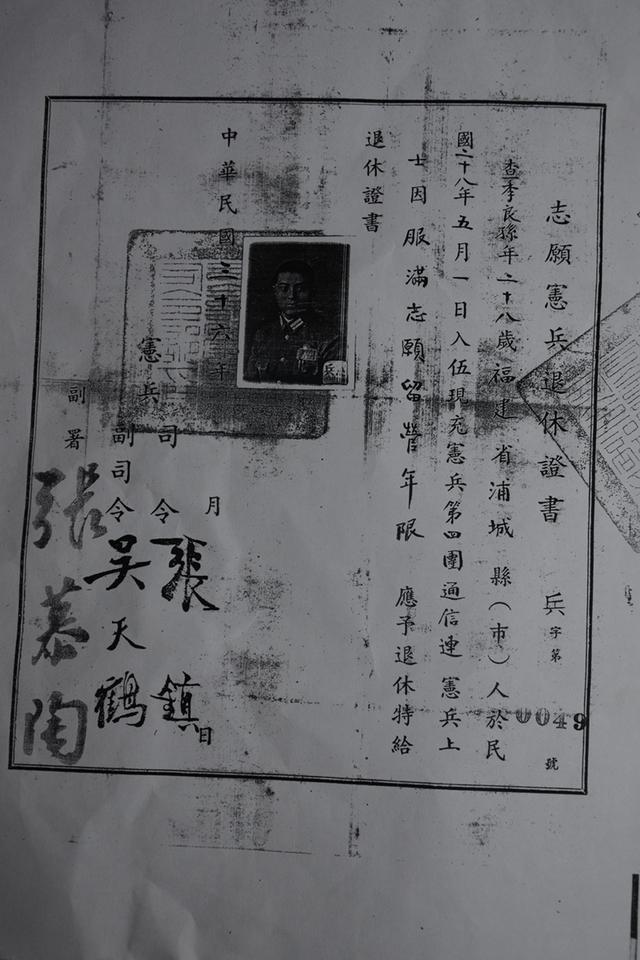 志願憲兵退休證書
兵字第0049號
查李良孫年二十八歲福建省浦城縣(市)人於民
國二十八年五月一日入伍現充憲兵第四團通信連憲兵上
士因服滿志願留營年限 應予退休特給
退休證書
中華民國三十六年 月 日
憲兵司令張鎮
副司令吳天鶴
副署張慕陶